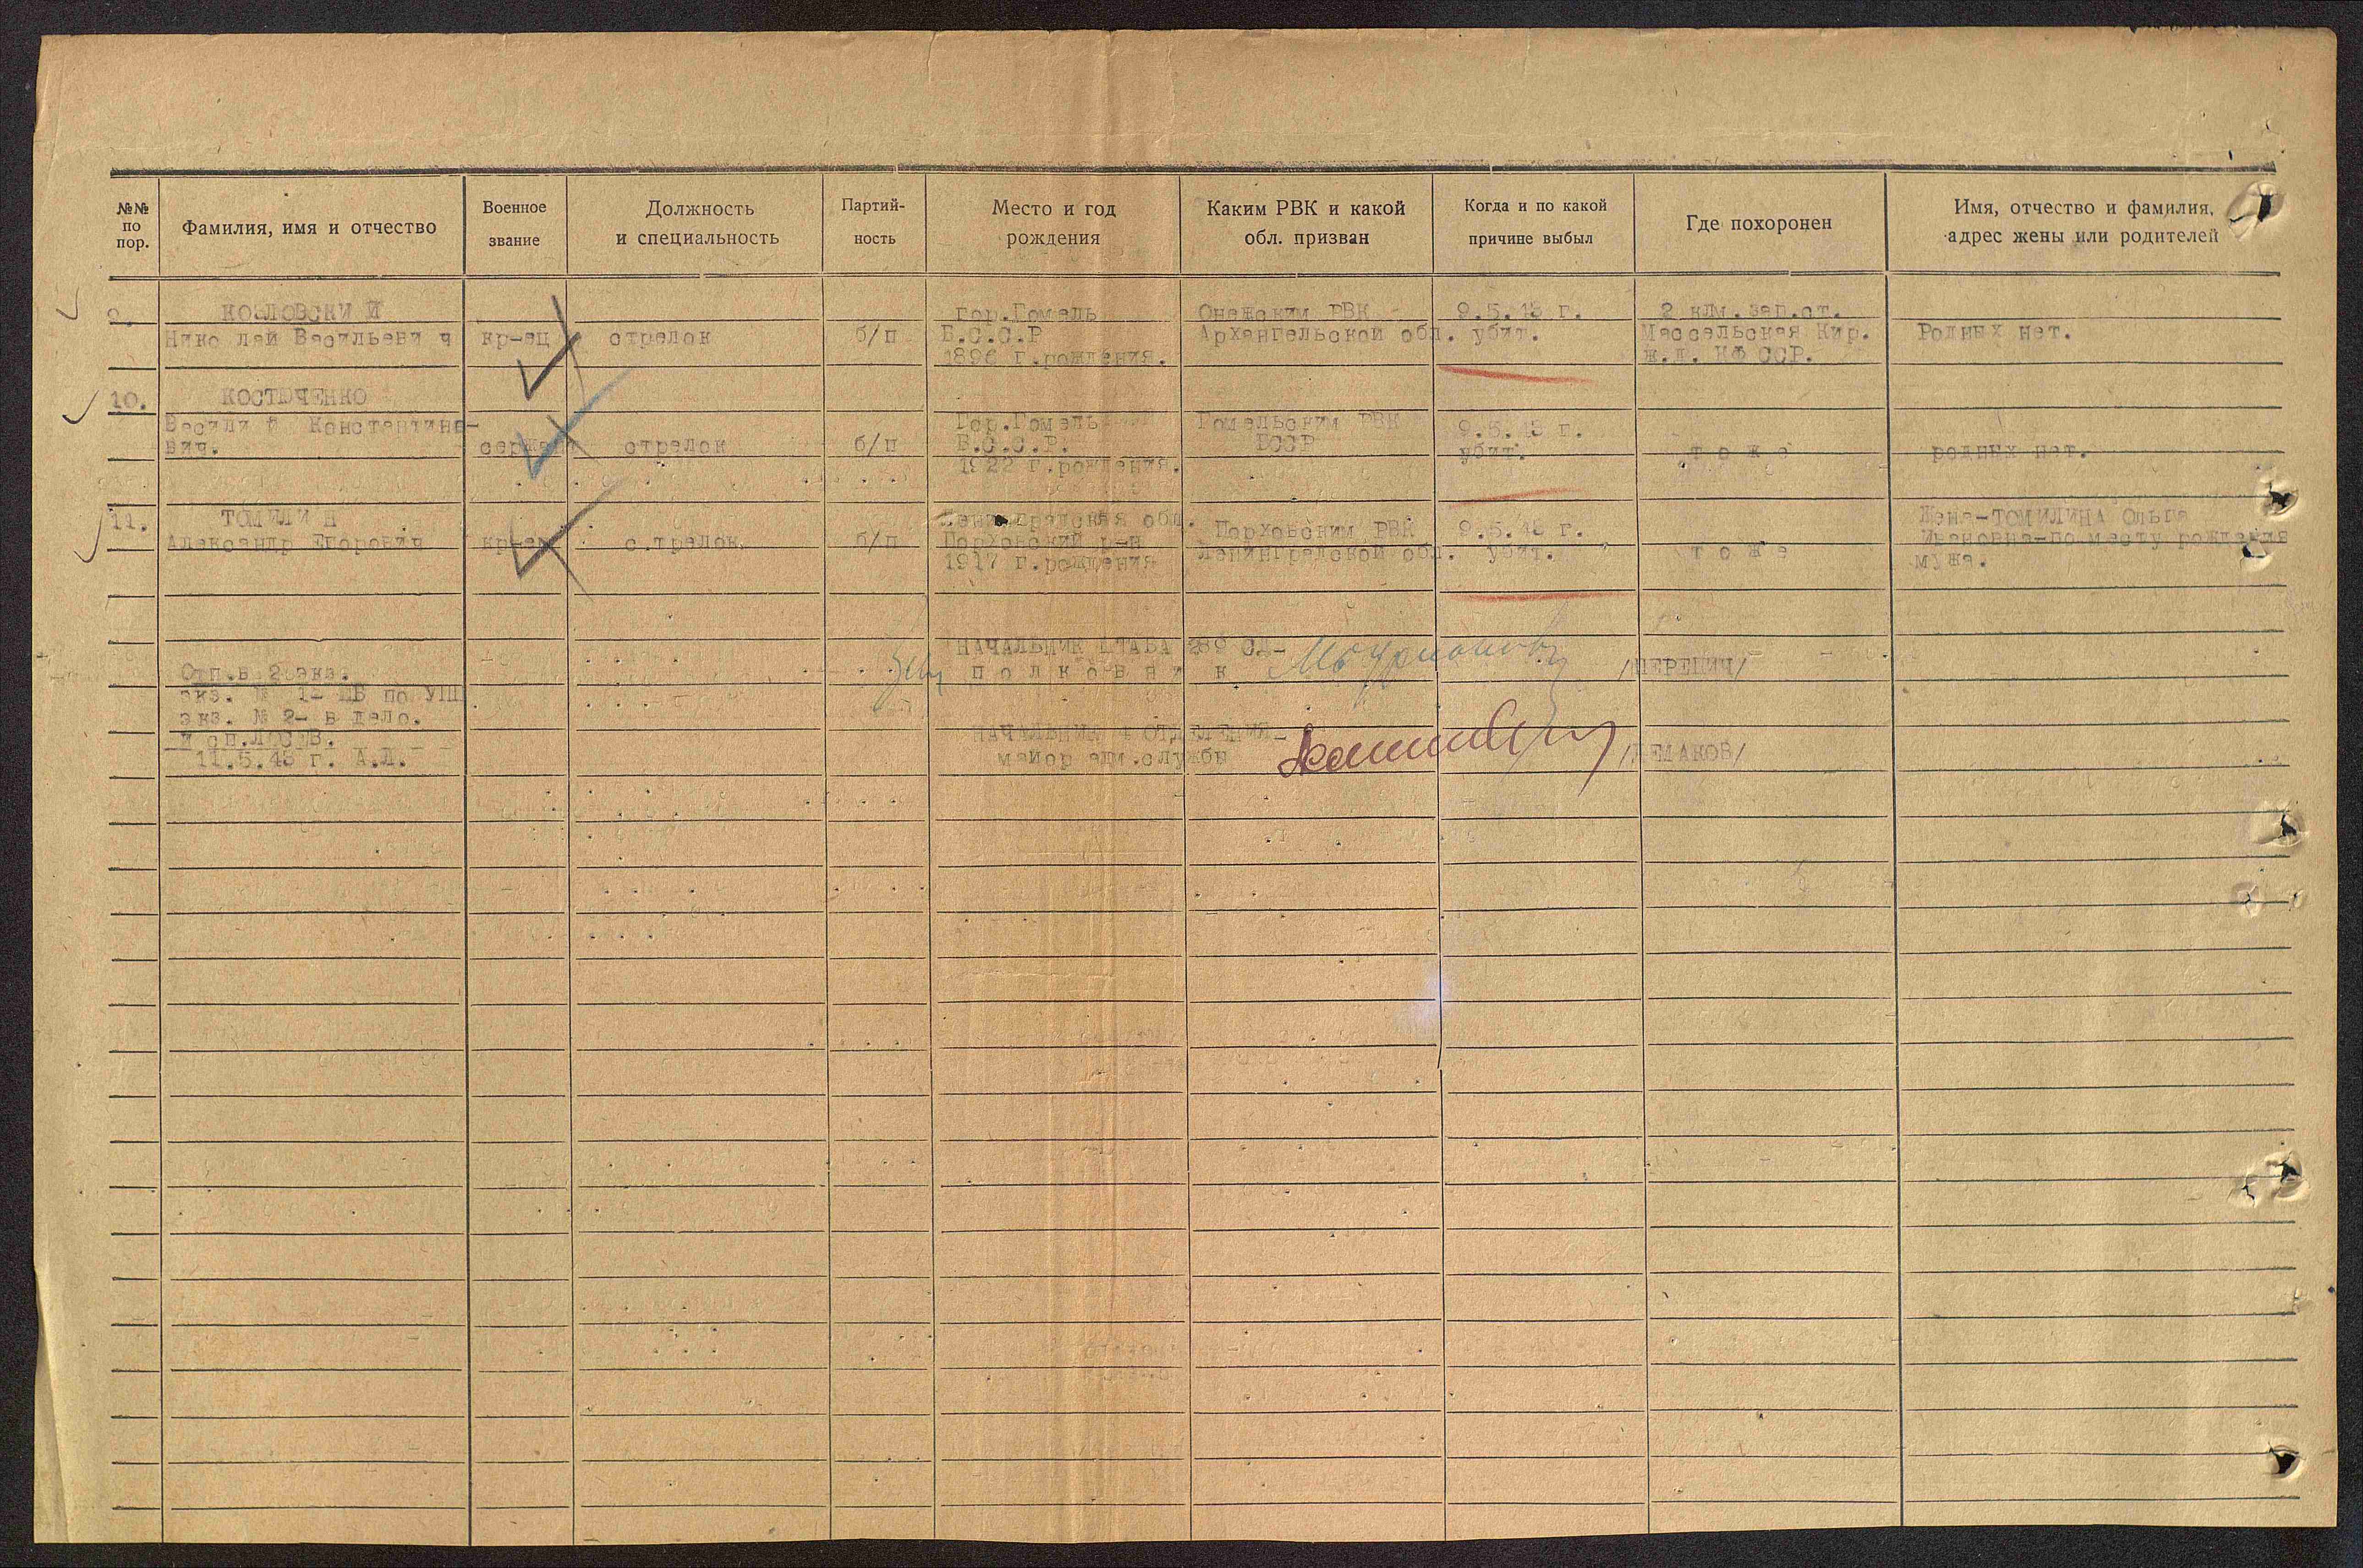 №№ по пор.
Фамилия, имя и отчество
Военное звание
Должность и специальность
Партий- ность
Место и год рождения
Каким РВК и какой обл. призван
Когда и по какой причине выбыл
Где похоронен
Имя, отчество и фамилия, адрес жены или родителей
9. КОЗЛОВСКИ Й гор.Гомель Онежским РВК 9.5.43 г. 2 клм. зап.ст.
Нико лай Васильеви ч кр-ец стрелок б/п Б.С.С.Р Архангельской обл. убит. Массельская Кир. Родных нет.
1896 г.рождения. ж.д. КФ ССР.
10. КОСТЮЧЕНКО
Васили й Константино- Гор.Гомель Гомельским РВК 9.5.43 г.
вич. серж стрелок б/п Б.С.С.Р. БССР убит. т о ж е родных нет.
1922 г.рождения.
11. ТОМИЛИ Н Ленинградская обл. Порховским РВК 9.5.43 г. Жена-ТОМИЛИНА Ольга
Александр Егорович кр-ец с.трелок б/п Порховский р-н Ленинградской обл. убит. т о ж е Ивановна-по месту рождения
1917 г.рождения мужа.
НАЧАЛЬНИК ШТАБА 289 СД-
п о л к о в н и к /ЧЕРЕПИЧ/
Отп.в 2 экз.
экз. № 1-
экз. № 2- в дело.
И сп.ЛОСЕВ.
11.5.43 г. А.Л.
НАЧАЛЬНИК 4 ОТДЕЛЕНИЯ-
майор адм.службы